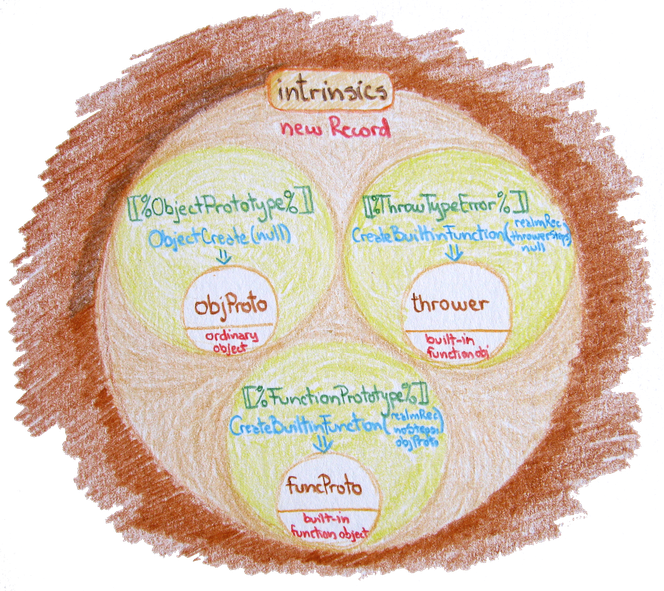 intrinsics
new Record
[[%ObjectPrototype%]]
ObjectCreate(null)
objProto
ordinary
object
[[%ThrowTypeError%]]
CreateBuiltinFunction(realmRec,
throwerSteps,
null)
thrower
built-in
function obj
[[%FunctionPrototype%]]
CreateBuiltinFunction(realmRec,
noSteps,
objProto)
funcProto
built-in
function object